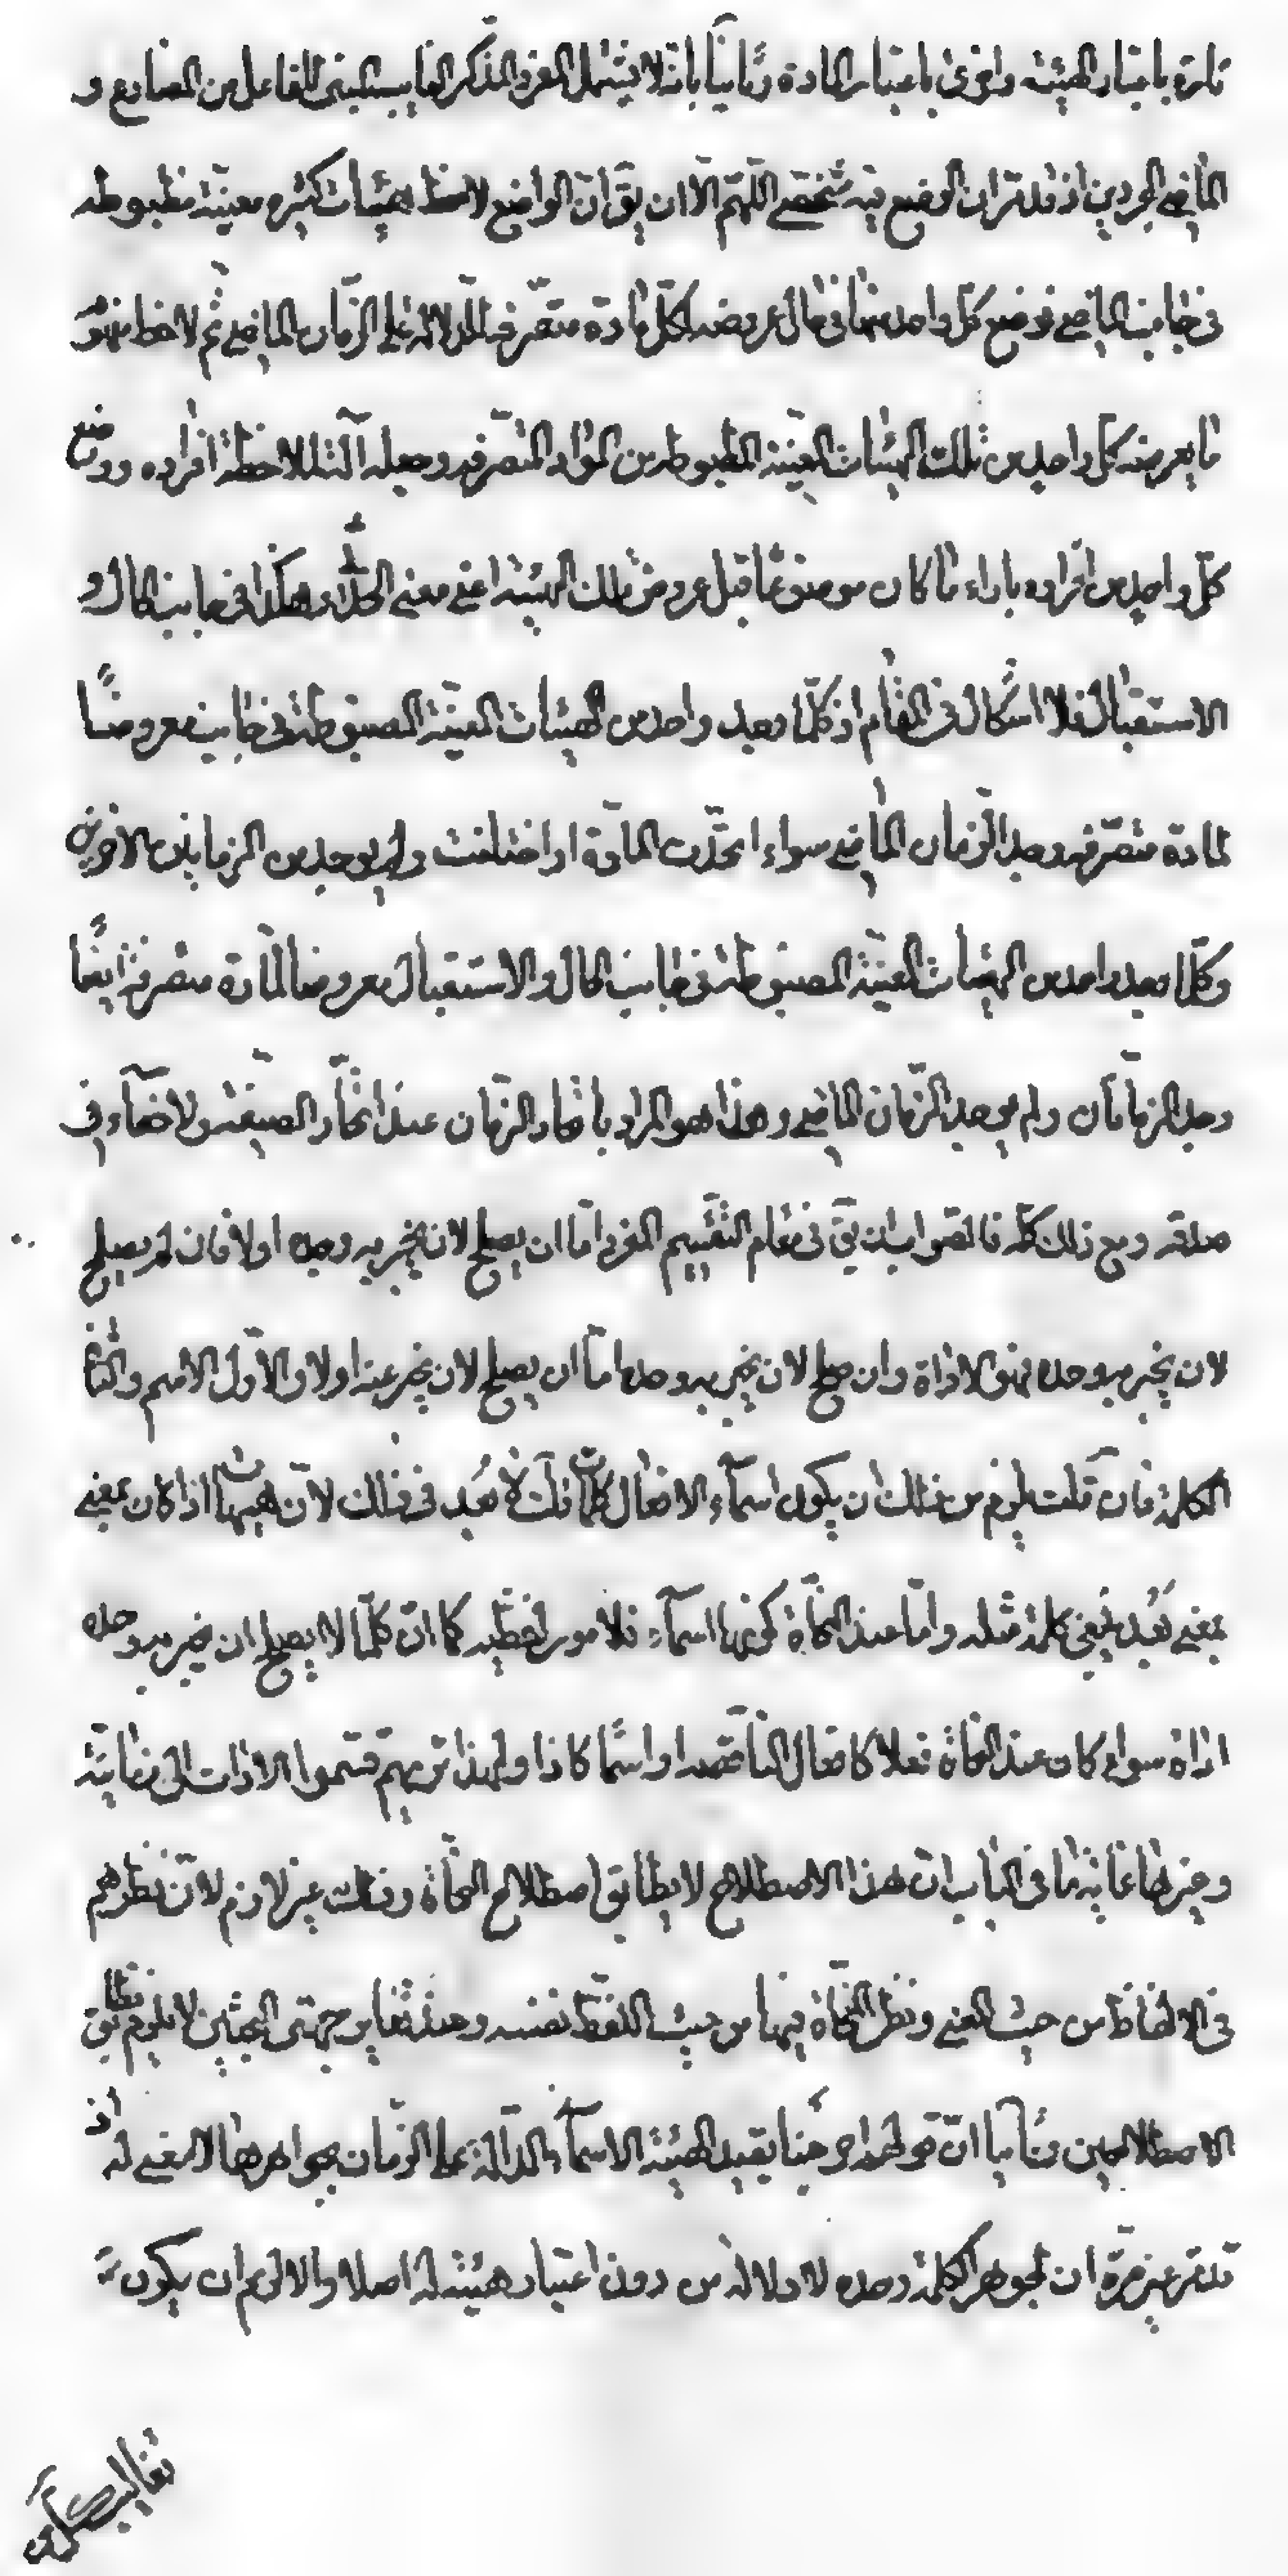 تارة باعتبار الهيئة واخرى باعتبار المادة وثانيا بانه لا يشمل المفرد المذكر الغايب المبنى للفاعل من المضارع و
الماضى المجردين اذ قد تقرر ان الوضع فيه شخصى اللهم الا ان يق ان الواضع لاحظ هيئات كثيره معينة مظبوطه
فى جانب الماضى فوضع كل واحد منها فى حال عروضه لكل مادة متصرفه للدلالة على الزمان الماضى ثم لاحظ مفهوم
ما يعرضه كل واحد من تلك الهيئات المعينة المظبوطه من المواد المتصرفه وجعله آلة لملاحظة افراده ووضع
كل واحد من افراده باراء ما كان موضوعا قبل عروض تلك الهيئة اعنى معنى الحدث وهكذا فى جانب الحال و
الاستقبال فلا اشكال فى المقام اذ كلما وجد واحد من الهيئات المعينة المضبوطة فى جانب معروضا
لمادة متصرفه وجد الزمان الماضى سواء اتحدت المادة او اختلفت ولم يوجد من الزمانين الاخرين
وكلما وجد واحد من الهيئات المعينة المضبوطة فى جانب الحال والاستقبال معروضا لمادة متصرفة ايضا
وجد الزمانان ولم يوجد الزمان الماضى وهذا هو المراد باتحاد الزمان عند اتحاد الصيغة ولا خفاء فى
صدقه ومع ذلك كله فالصواب ان يق فى مقام التقسيم المفرد اما ان يصلح لان يخبر به وحده اولا فان لم يصلح
لان يخبر به وحده فهو الاداة وان صلح لان يخبر به وحده اما ان يصلح لان يخبر عنه اولا والاول الاسم والثانى
الكلمة فان قلت يلزم من ذلك ان يكون اسماء الافعال كلمات قلت لا بعد فى ذلك لان هيهات اذا كان بمعنى
بمعنى بَعُد ينبغى كلمة مثله واما عند النحاة كونها اسماء فلامور لفظيه كما ان كلما لا يصلح ان يخبر به وحده
اداة سواء كان عند النحاة فعلا كافعال الناقصه او اسما كاذا ولهذا تريهم قسموا الادات الى زمانية
وغيرها غاية ما فى الباب ان هذا الاصطلاح لا يطابق اصطلاح النحاة وذلك غير لازم لان نظرهم
فى الالفاظ من حيث المعنى ونظر النحاة فيها من حيث اللفظ نفسه وعند تغاير جهتى البحثين لا يلزم تطابق
الاصطلاحين وثانيا ان قولهم احرجنا بقيد الهيئة الاسماء الدالة على الزمان بجواهرها لا معنى له اذ
قد تقرر غير مرة ان لجوهر الكلمة وحده لا دلالة من دون اعتبار هيئة له اصلا والا لزم ان يكون